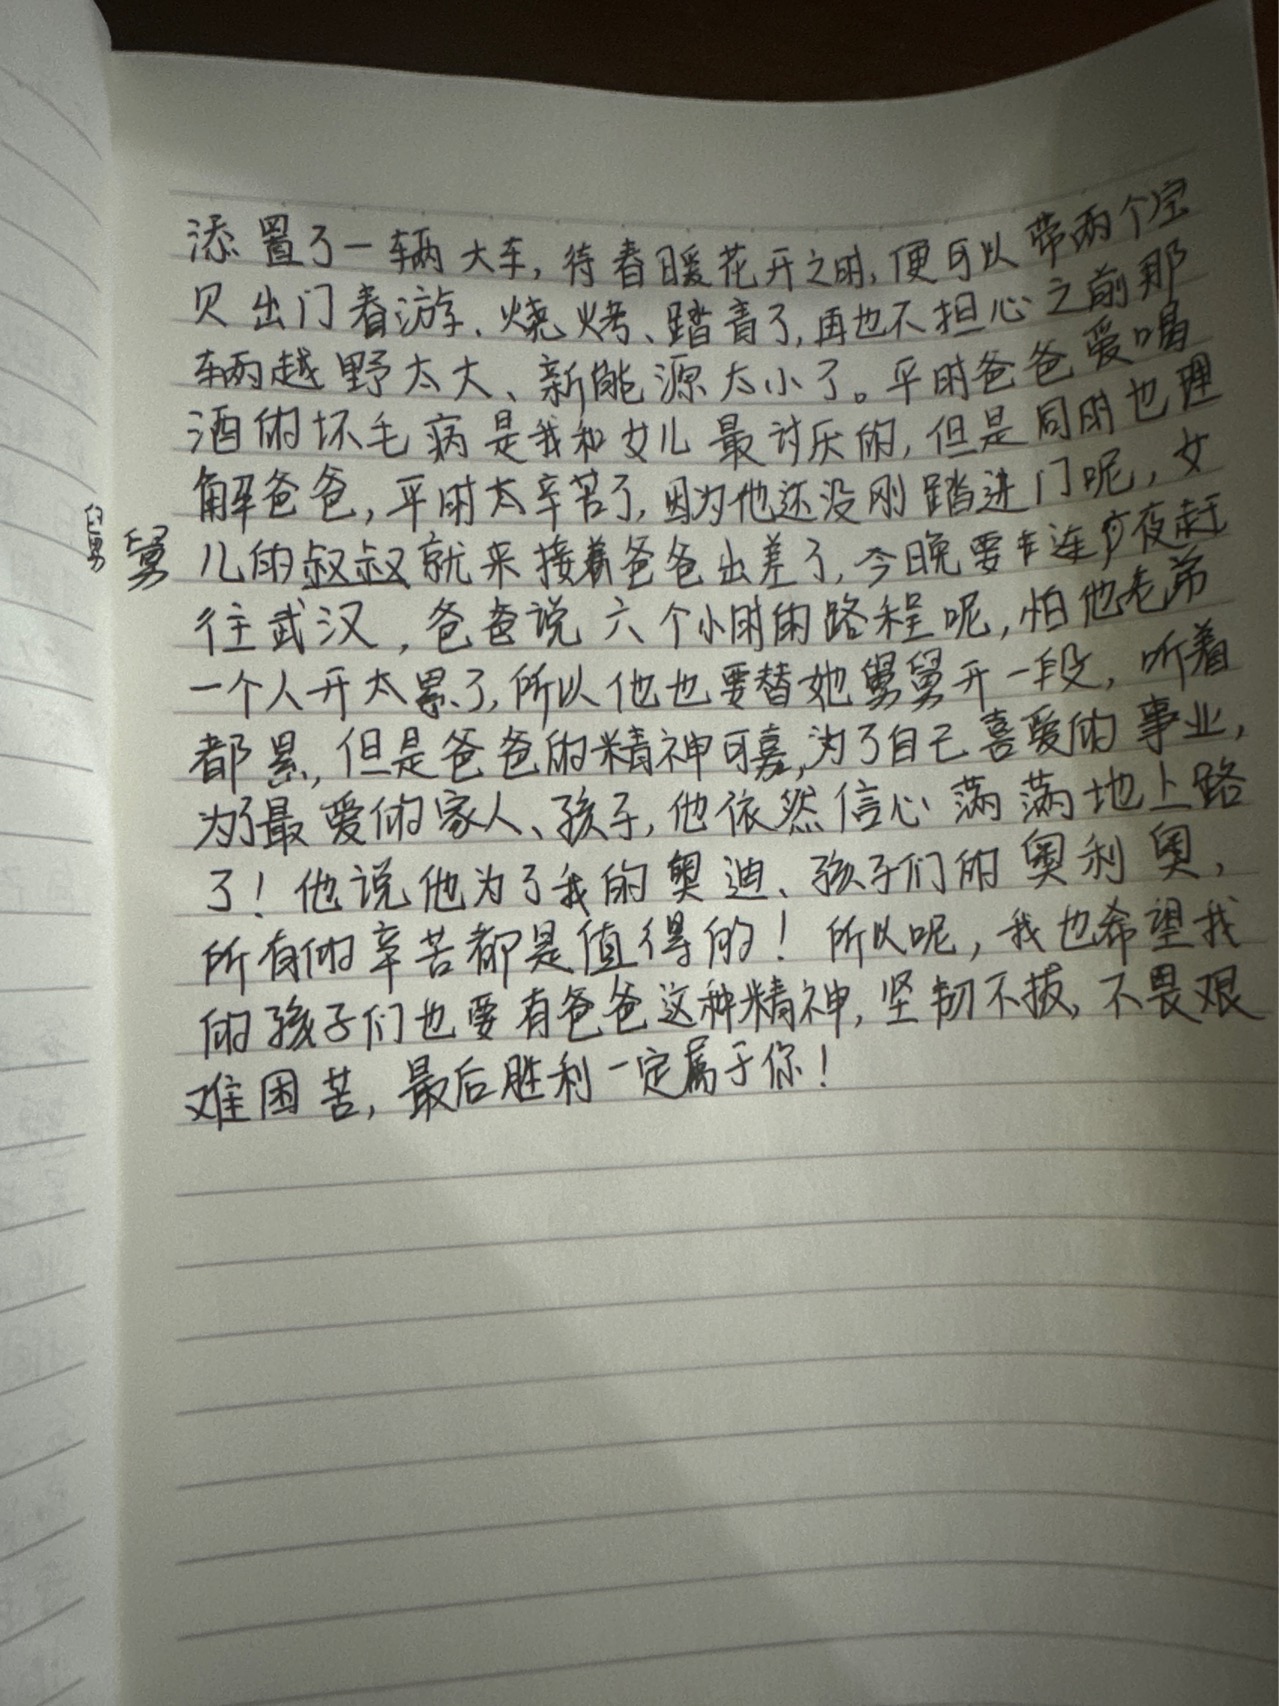 添置了一辆大车，待春暖花开之时，便可以带两个宝
贝出门春游、烧烤、踏青了，再也不担心之前那
辆越野太大、新能源太小了。平时爸爸爱喝
酒的坏毛病是我和女儿最讨厌的，但是同时也理
解爸爸，平时太辛苦了，因为他还没刚踏进门呢，女
舅 舅 儿的叔叔就来接着爸爸出差了，今晚要连夜赶
往武汉，爸爸说六个小时的路程呢，怕他老弟
一个人开太累了，所以他也要替她舅舅开一段，听着
都累，但是爸爸的精神可嘉，为了自己喜爱的事业，
为了最爱的家人、孩子，他依然信心满满地上路
了！他说他为了我的奥迪、孩子们的奥利奥，
所有的辛苦都是值得的！所以呢，我也希望我
的孩子们也要有爸爸这种精神，坚韧不拔，不畏艰
难困苦，最后胜利一定属于你！